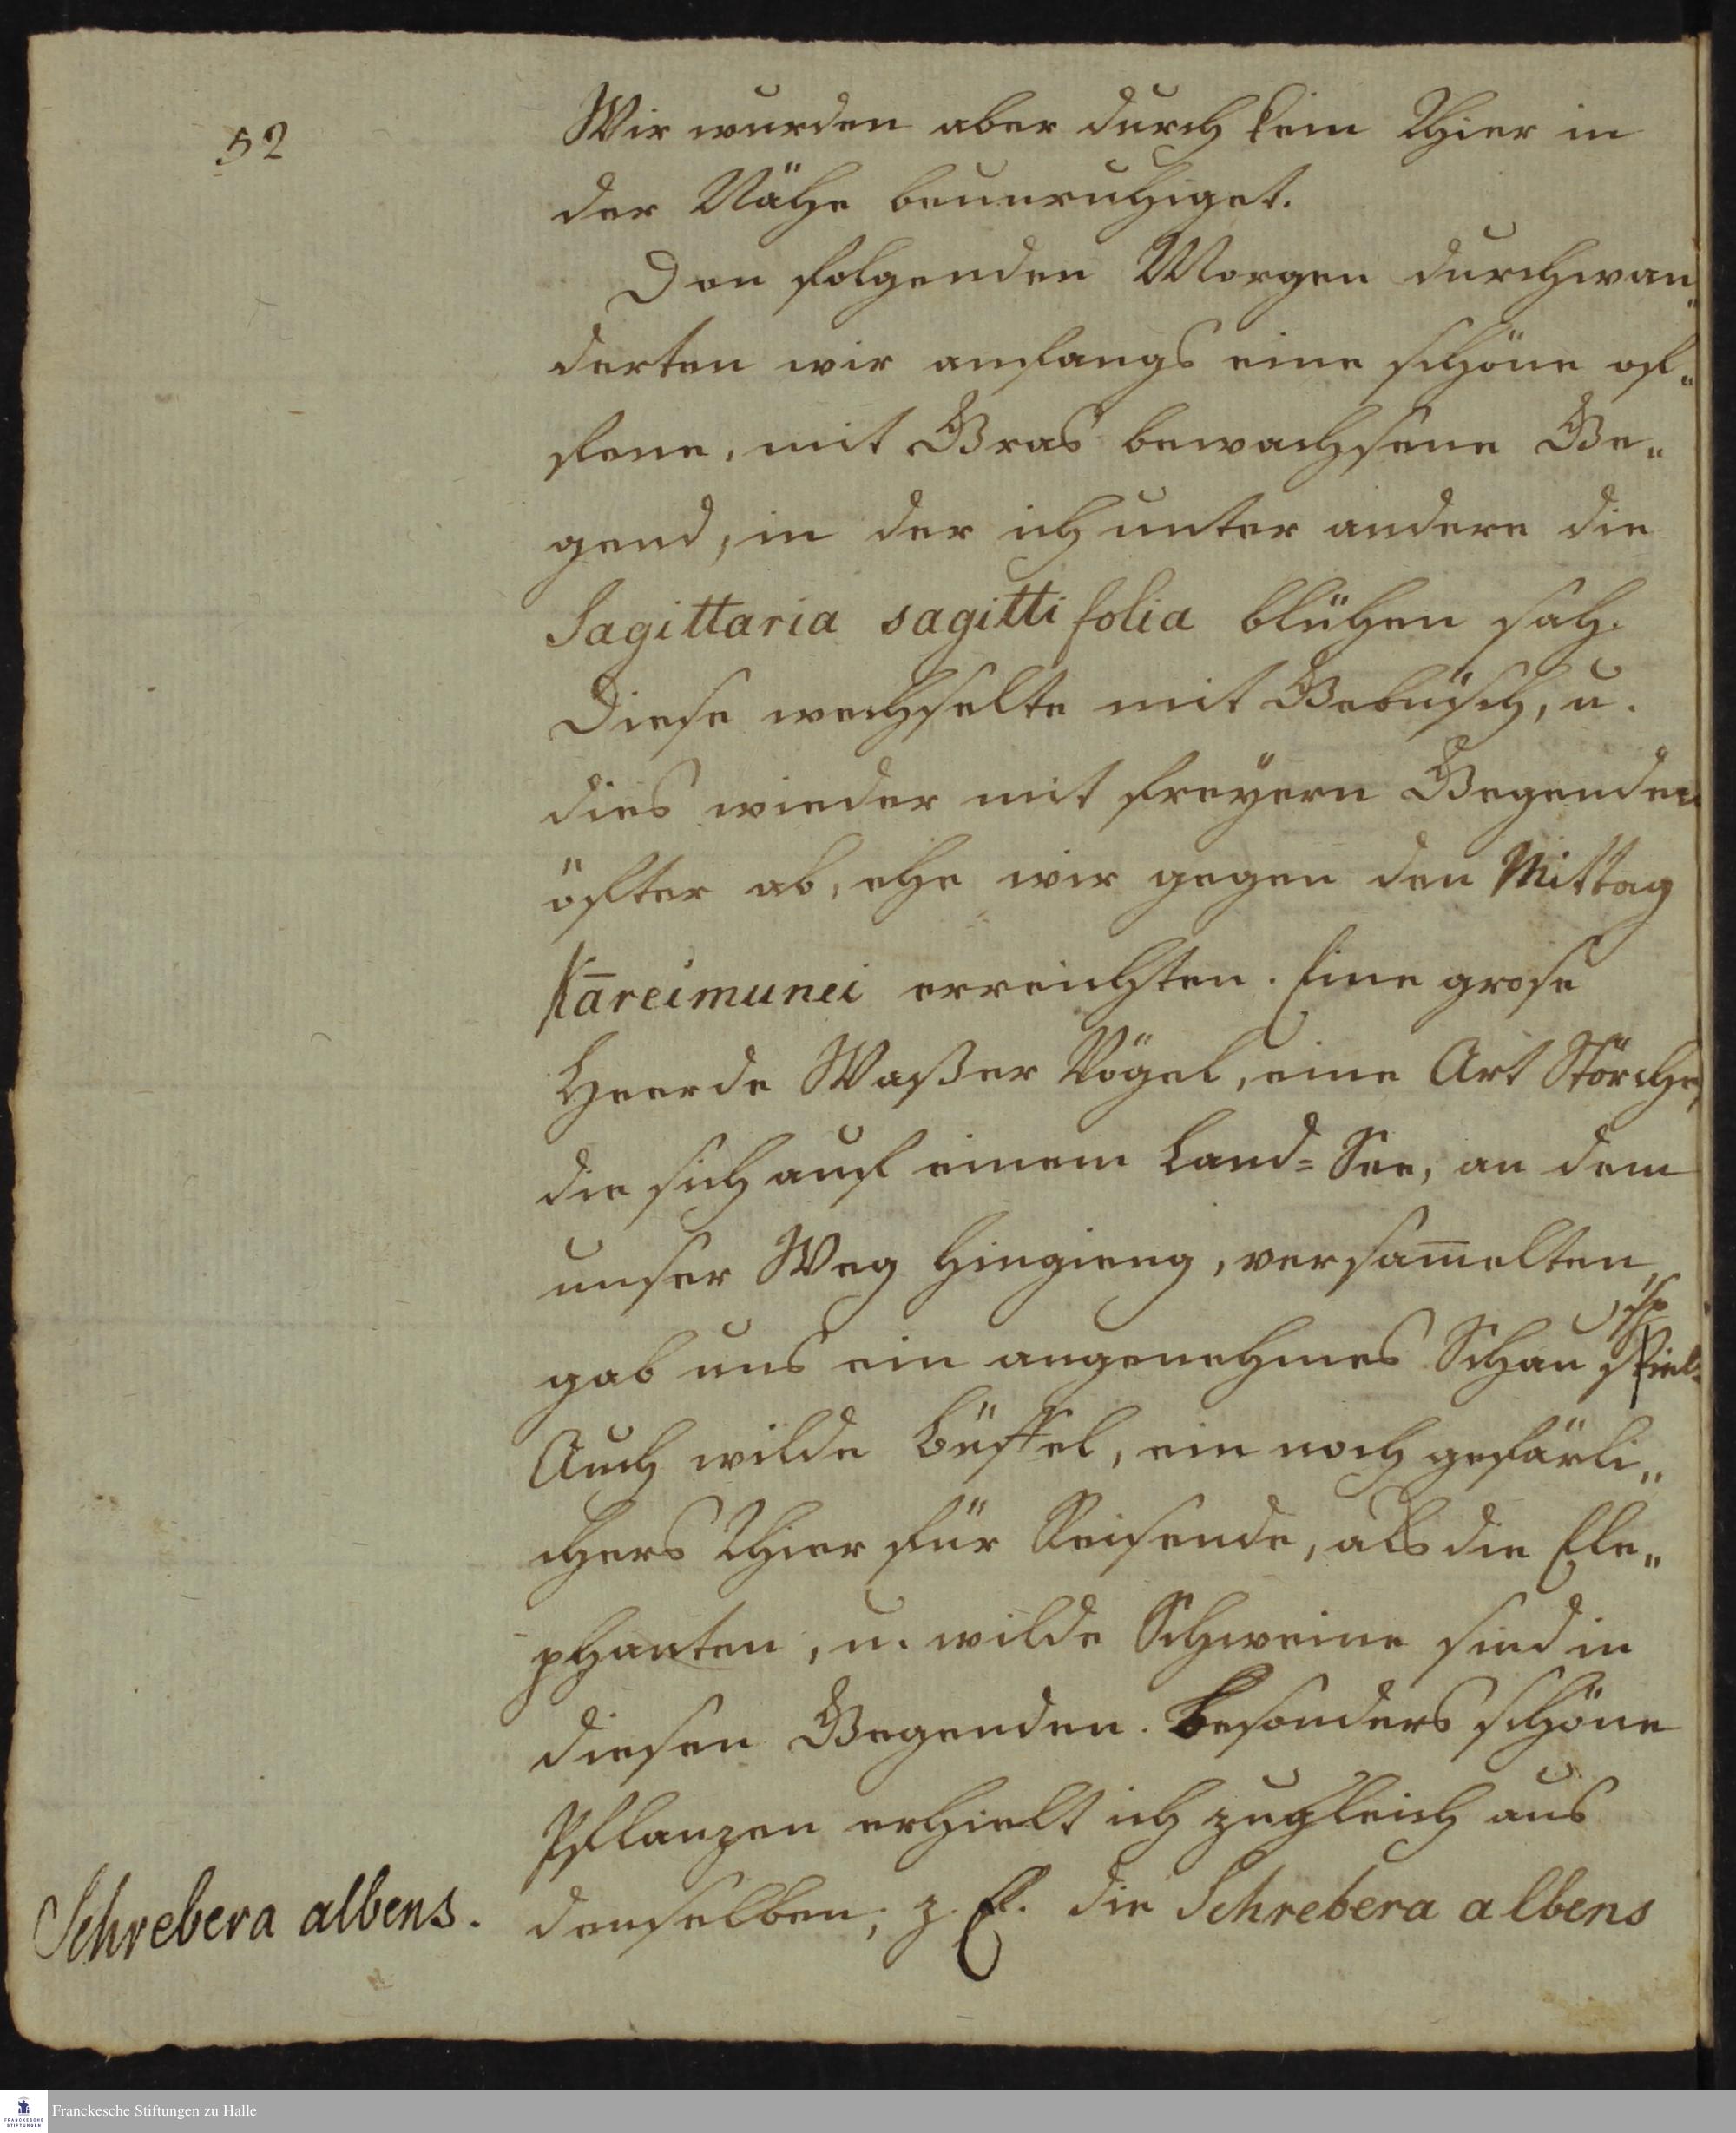 52
Wir wurden aber durch kein Thier in
der Nähe beunruhiget.
Den folgenden Morgen durchwan„
derten wir anfangs eine schöne of„
fene, mit Gras bewachsene Ge„
gend, in der ich unter andern die
Sagittaria sagittifolia blühen sah.
Diese wechselte mit Gebüsch, u.
dies wieder mit freyern Gegenden
öfter ab, ehe wir gegen den Mittag
Kāreimunei erreichten. Eine grose
Heerde Waßer Vögel, eine Art Störche,
die sich auf einem Land=See, an dem
unser Weg hingieng, versam̅elten,
gab uns ein angenehmes Schauspiel.
Auch wilde Büffel, ein noch gefärli„
chers Thier für Reisende, als die Ele„
phanten, u. wilde Schweine sind in
diesen Gegenden. Besonders schöne
Pflanzen erhielt ich zugleich aus
denselben; z. E. die Schrebera albens
Schrebera albens.
Franckesche Stiftungen zu Halle